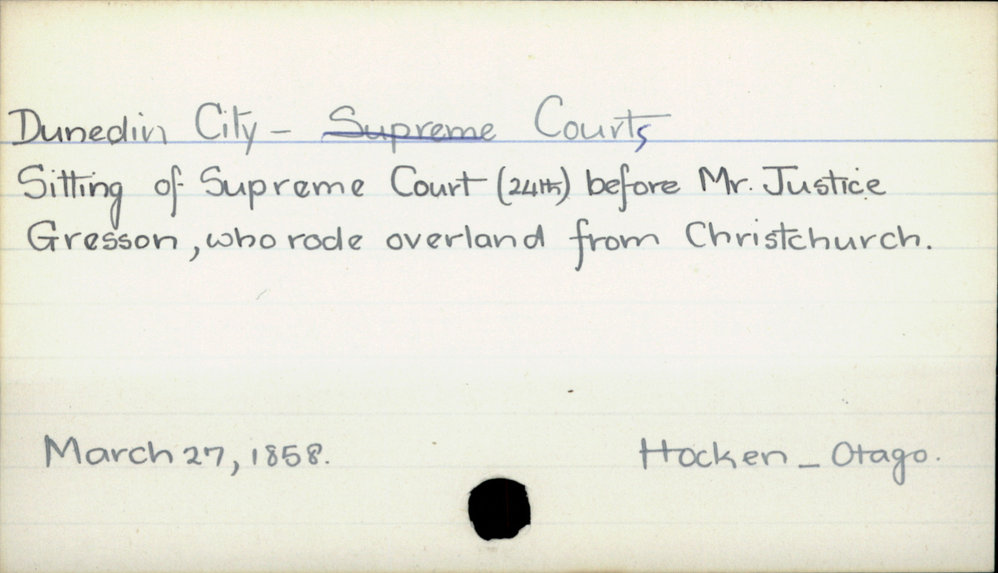 Dunedin City - Supreme Courts
Sitting of Supreme Court (24th) before Mr. Justice
Gresson, who rode overland from Christchurch.
March 27, 1858. Hocken - Otago.